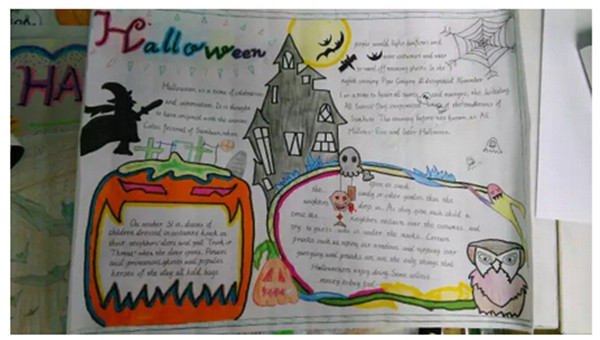 Halloween
Halloween is a time of celebration
and superstition. It is thought
to have originated with the ancient
Celtic festival of Samhain, when
people would light bonfires and
wear costumes and wear
to ward off roaming ghosts. In the
eighth century, Pope Gregory III designated November
1 as a time to honor all saints and martyrs; the holiday,
All Saints' Day, incorporated of the traditions of
Samhain. The evening before was known as All
Hallows' Eve and later Halloween.
On october 31 st, dozens of
children dressed in costumes knock on
their neighbors' doors and yell "Trick or
Threat" when the door opens. Pirates
and princesses, ghosts and popular
heroes of the day all hold bags
the given or
the candy or other goodies that the
neighbors drop in. As they give each child a
treat the neighbors exclaim over the costumes and
try to guess who is under the masks. Certain
pranks such as soaping car windows and tipping over
garbage and pranks are not the only things that
Halloweeners enjoy doing. Some collect
money to buy food
HA